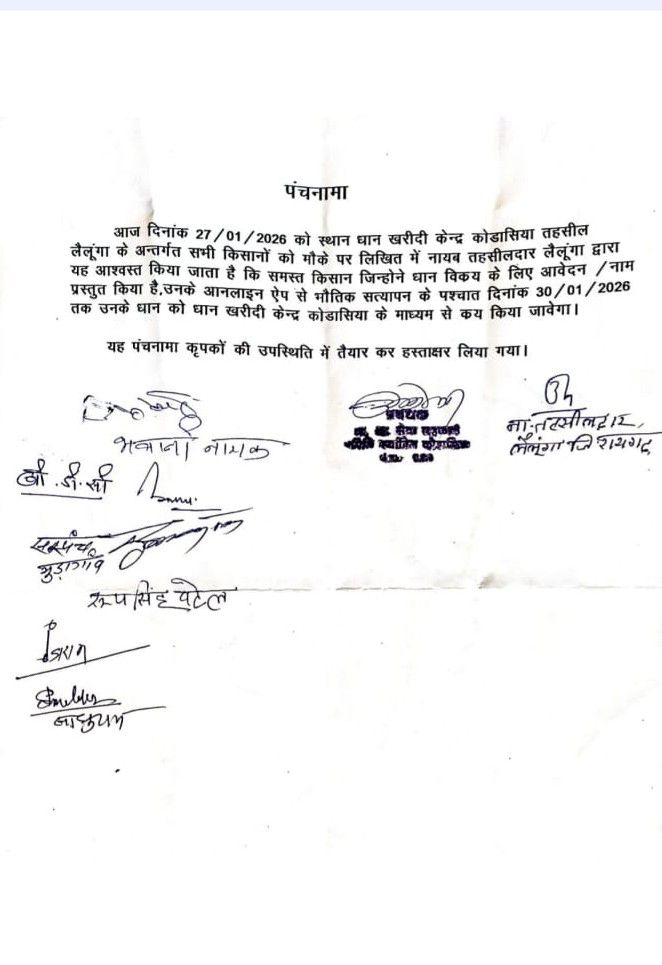 पंचनामा
आज दिनांक 27/01/2026 को स्थान धान खरीदी केन्द्र कोडासिया तहसील
लैलूंगा के अन्तर्गत सभी किसानों को मौके पर लिखित में नायब तहसीलदार लैलूंगा द्वारा
यह आश्वस्त किया जाता है कि समस्त किसान जिन्होने धान विकय के लिए आवेदन /नाम
प्रस्तुत किया है,उनके आनलाइन ऐप से भौतिक सत्यापन के पश्चात दिनांक 30/01/2026
तक उनके धान को धान खरीदी केन्द्र कोडासिया के माध्यम से कय किया जावेगा।
यह पंचनामा कृपकों की उपस्थिति में तैयार कर हस्ताक्षर लिया गया।
प्रबंधक
सेवा सहकारी
समिति मर्यादित
ना. तहसीलदार
लैलूंगा जि रायगढ़
नायक
बी.डी.सी
सरपंच
मुड़ागांव
रूपसिंह पटेल